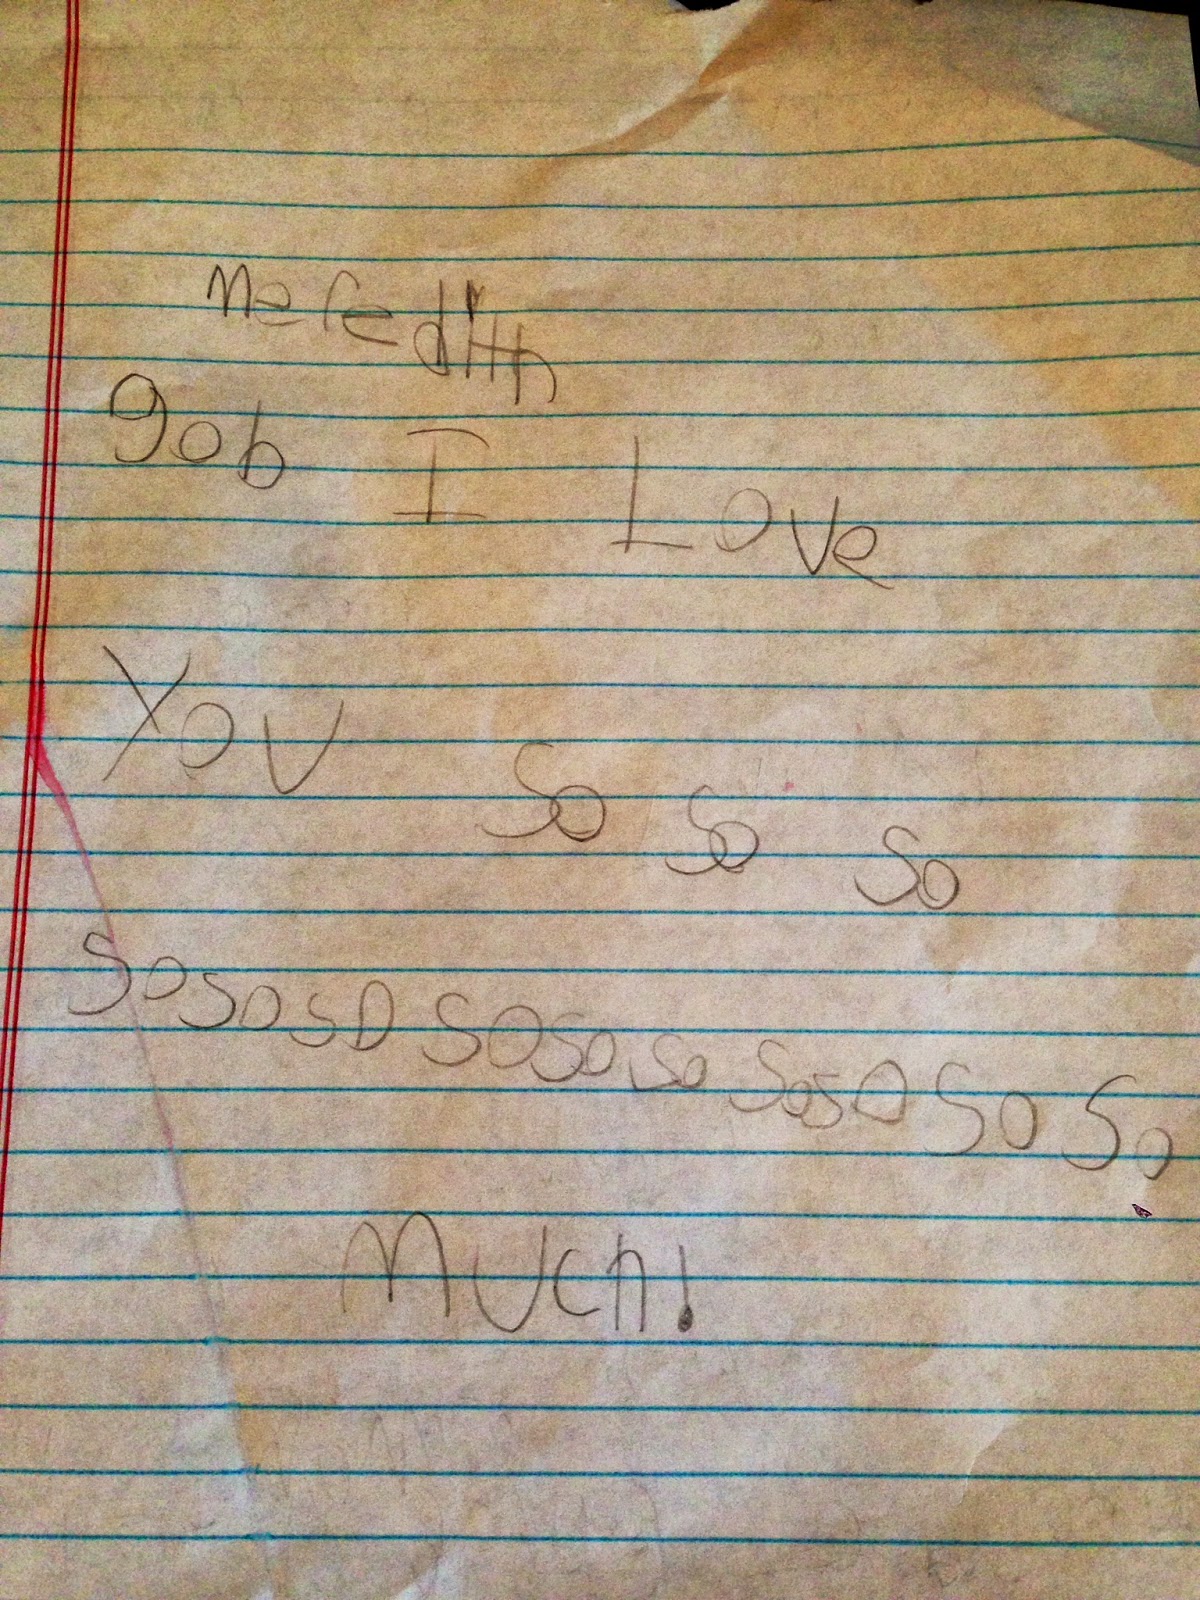 Meredith
gob I Love
You So So So
So so so So so so So so So So
Much!